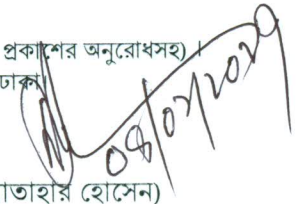 প্রকাশের অনুরোধসহ)।
ঢাকা।
০৪/০৭/২০২৩
াতাহার হোসেন)